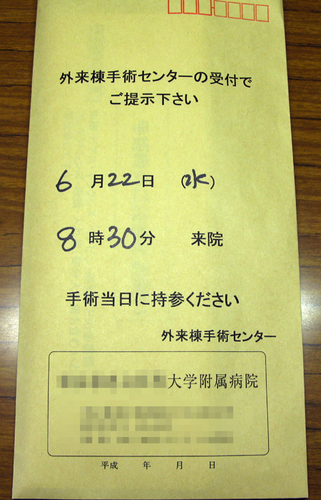 外来棟手術センターの受付で
ご提示下さい
6月22日（水）
8時30分　来院
手術当日に持参ください
外来棟手術センター
大学附属病院
平成　年　月　日